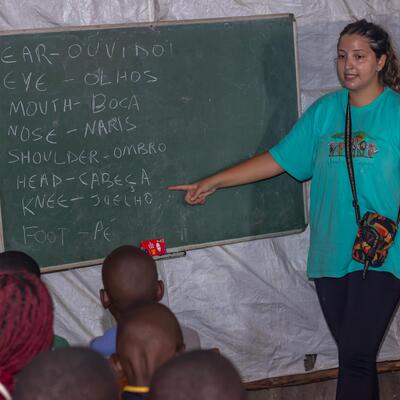 EAR - OUVIDO
EYE - OLHOS
MOUTH - BOCA
NOSE - NARIS
SHOULDER - OMBRO
HEAD - CABEÇA
KNEE - JOELHO
FOOT - PÉ